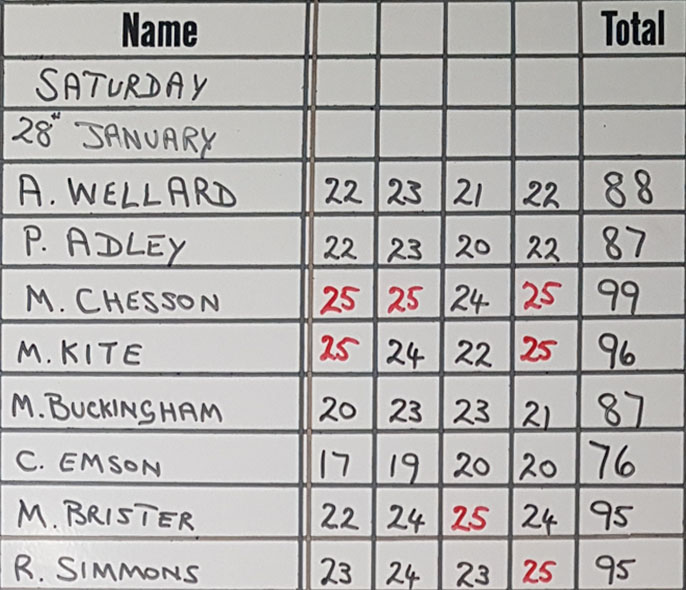 Name Total
SATURDAY
28th JANUARY
A. WELLARD 22 23 21 22 88
P. ADLEY 22 23 20 22 87
M. CHESSON 25 25 24 25 99
M. KITE 25 24 22 25 96
M. BUCKINGHAM 20 23 23 21 87
C. EMSON 17 19 20 20 76
M. BRISTER 22 24 25 24 95
R. SIMMONS 23 24 23 25 95